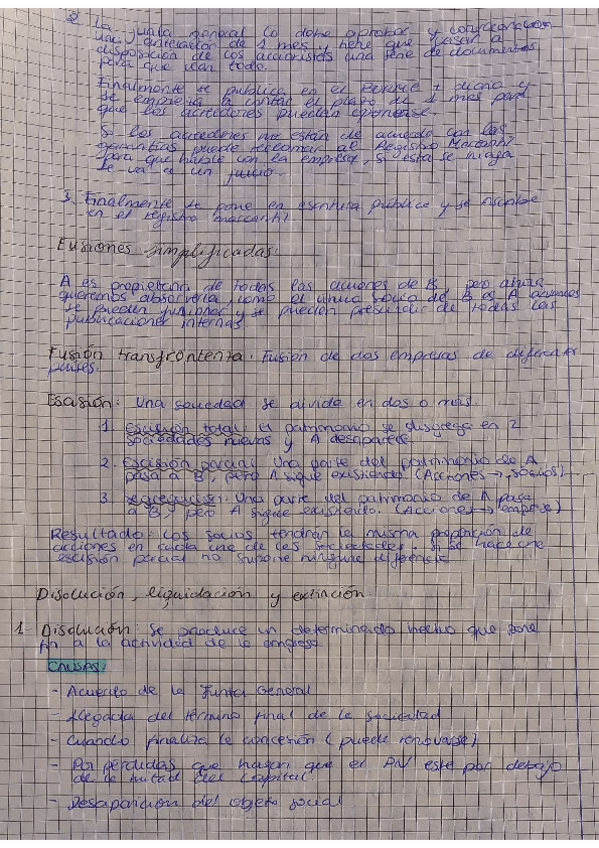 2. La junta general lo debe aprobar y
una antelación de 1 mes y tiene que pasar a
disposición de los accionistas una serie de documentos
para que vean todo.
Finalmente se publica en el BORME + diario y
se empieza a contar el plazo de 1 mes para
que los acreedores puedan oponerse.
Si los acreedores no están de acuerdo con las
garantías puede reclamar al Registro Mercantil
para que hable con la empresa, si esta se niega
se va a un juicio.
3. Finalmente se pone en escritura pública y se inscribe
en el registro mercantil
Fusiones simplificadas:
A es propietaria de todas las acciones de B, pero ahora
queremos absorverla, como el único socio de B es A
se pueden y se pueden prescindir de todas las
publicaciones internas
Fusión transfronteriza: Fusión de dos empresas de diferentes
países.
Escisión: Una sociedad se divide en dos o más.
1. Escisión total: el patrimonio se disgrega en 2
sociedades nuevas y A desaparece
2. Escisión parcial: Una parte del patrimonio de A
pasa a B, pero A sigue existiendo (Acciones → socios)
3. Segregación: Una parte del patrimonio de A pasa
a B, pero A sigue existiendo. (Acciones → empresa)
Resultado: Los socios tendrán la misma proporción de
acciones en cada una de las sociedades. Si se hace una
escisión parcial no supone ninguna diferencia
Disolución, liquidación y extinción
1- Disolución: Se produce un determinado hecho que pone
fin a la actividad de la empresa
CAUSAS:
- Acuerdo de la Junta General
- Llegada del término final de la sociedad
- Cuando finaliza la concesión (puede renovarse)
- Por pérdidas que hagan que el PN este por debajo
de la mitad del Capital.
- Desaparición del objeto social